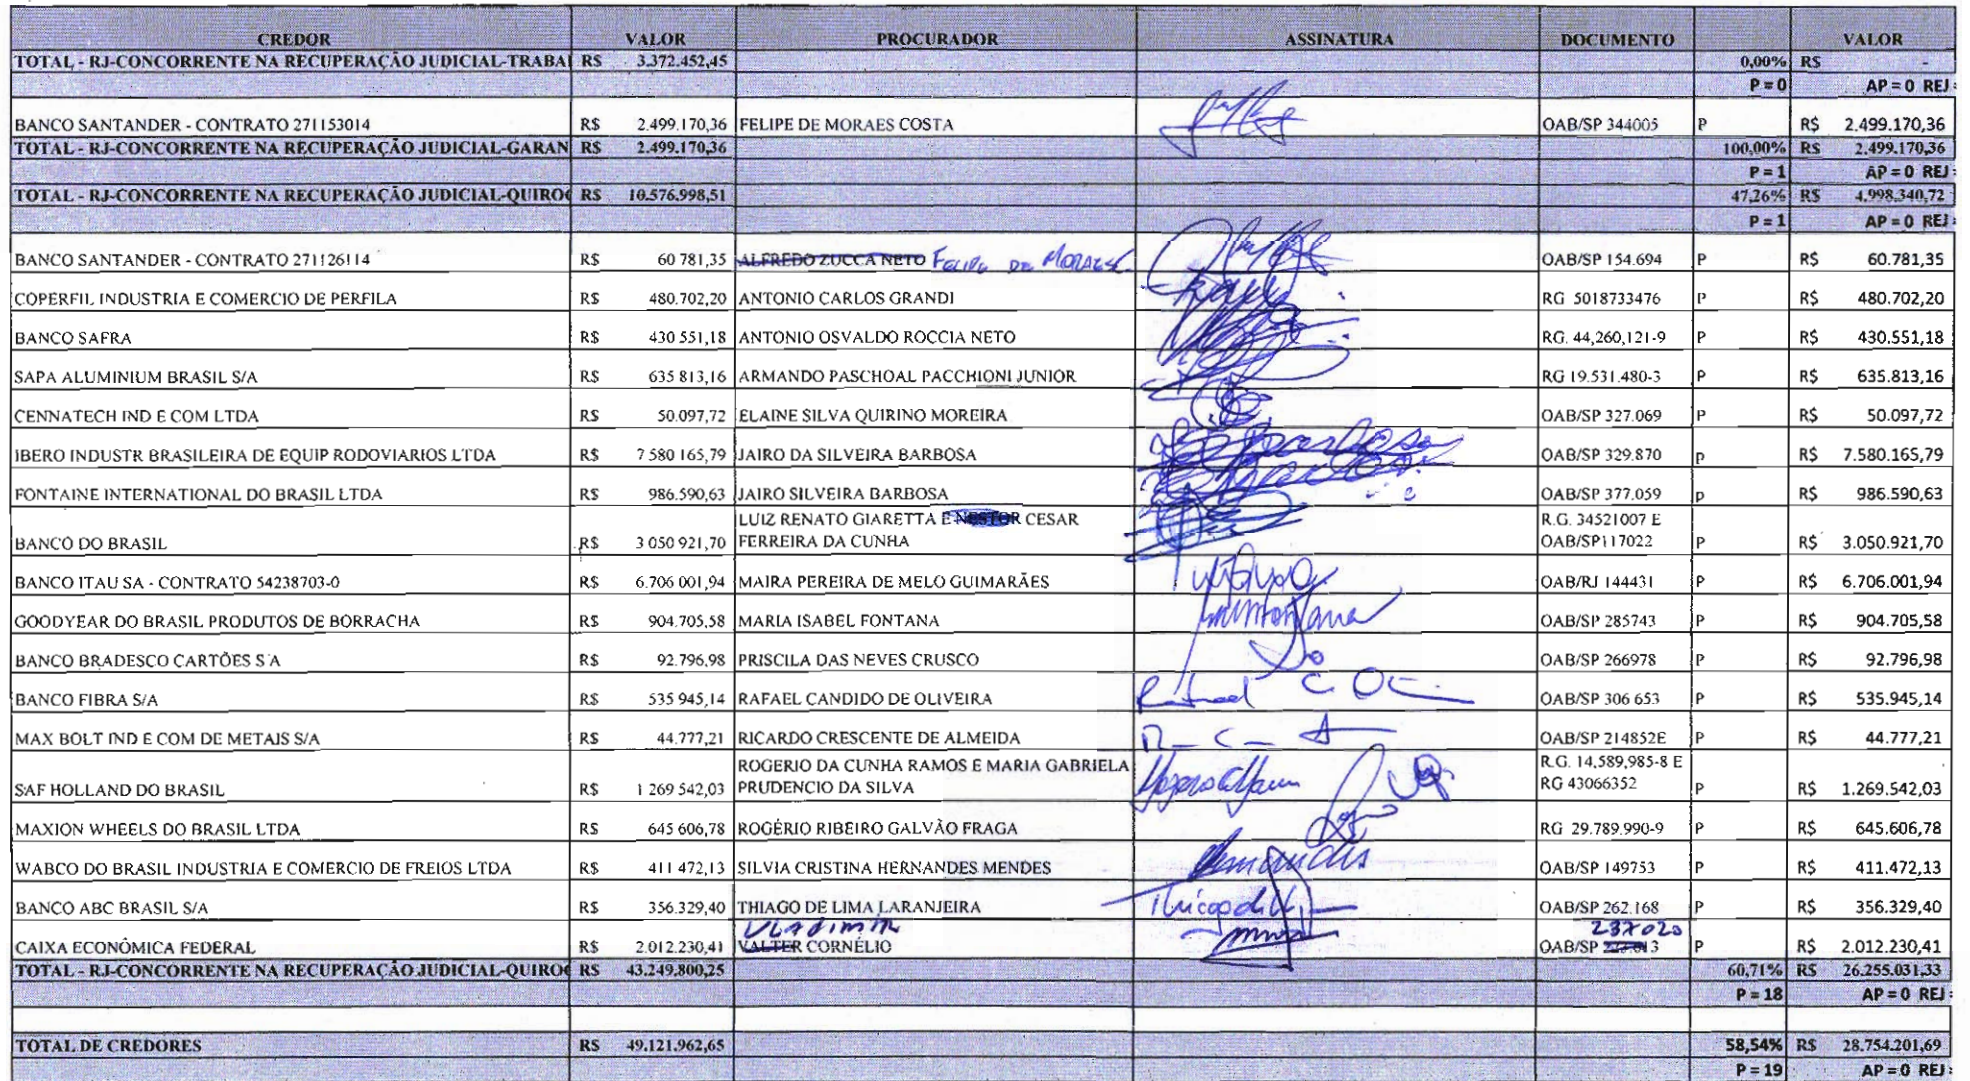 CREDOR VALOR PROCURADOR ASSINATURA DOCUMENTO VALOR
TOTAL - RJ-CONCORRENTE NA RECUPERAÇÃO JUDICIAL-TRABA R$ 3.372.452,45 0,00% R$ -
P = 0 AP = 0 REJ
BANCO SANTANDER - CONTRATO 271153014 R$ 2.499.170,36 FELIPE DE MORAES COSTA OAB/SP 344005 P R$ 2.499.170,36
TOTAL - RJ-CONCORRENTE NA RECUPERAÇÃO JUDICIAL-GARAN R$ 2.499.170,36 100,00% R$ 2.499.170,36
P = 1 AP = 0 REJ
TOTAL - RJ-CONCORRENTE NA RECUPERAÇÃO JUDICIAL-QUIRO R$ 10.576.998,51 47,26% R$ 4.998.340,72
P = 1 AP = 0 REJ
BANCO SANTANDER - CONTRATO 271126114 R$ 60 781,35 ALFREDO ZUCCA NETO FELIPE DE MORAES OAB/SP 154.694 P R$ 60.781,35
COPERFIL INDUSTRIA E COMERCIO DE PERFILA R$ 480.702,20 ANTONIO CARLOS GRANDI RG 5018733476 P R$ 480.702,20
BANCO SAFRA R$ 430 551,18 ANTONIO OSVALDO ROCCIA NETO RG. 44,260,121-9 P R$ 430.551,18
SAPA ALUMINIUM BRASIL S/A R$ 635 813,16 ARMANDO PASCHOAL PACCHIONI JUNIOR RG 19.531.480-3 P R$ 635.813,16
CENNATECH IND E COM LTDA R$ 50.097,72 ELAINE SILVA QUIRINO MOREIRA OAB/SP 327.069 P R$ 50.097,72
IBERO INDUSTR BRASILEIRA DE EQUIP RODOVIARIOS LTDA R$ 7 580 165,79 JAIRO DA SILVEIRA BARBOSA OAB/SP 329.870 p R$ 7.580.165,79
FONTAINE INTERNATIONAL DO BRASIL LTDA R$ 986.590,63 JAIRO SILVEIRA BARBOSA OAB/SP 377.059 p R$ 986.590,63
LUIZ RENATO GIARETTA E NESTOR CESAR R.G. 34521007 E
BANCO DO BRASIL R$ 3 050 921,70 FERREIRA DA CUNHA OAB/SP117022 P R$ 3.050.921,70
BANCO ITAU SA - CONTRATO 54238703-0 R$ 6.706 001,94 MAIRA PEREIRA DE MELO GUIMARÃES OAB/RJ 144431 P R$ 6.706.001,94
GOODYEAR DO BRASIL PRODUTOS DE BORRACHA R$ 904.705,58 MARIA ISABEL FONTANA OAB/SP 285743 P R$ 904.705,58
BANCO BRADESCO CARTÕES S A R$ 92.796,98 PRISCILA DAS NEVES CRUSCO OAB/SP 266978 P R$ 92.796,98
BANCO FIBRA S/A R$ 535 945,14 RAFAEL CANDIDO DE OLIVEIRA Rafael C. OAB/SP 306 653 P R$ 535.945,14
MAX BOLT IND E COM DE METAIS S/A R$ 44.777,21 RICARDO CRESCENTE DE ALMEIDA OAB/SP 214852E P R$ 44.777,21
ROGERIO DA CUNHA RAMOS E MARIA GABRIELA R.G. 14,589,985-8 E
SAF HOLLAND DO BRASIL R$ 1 269 542,03 PRUDENCIO DA SILVA RG 43066352 P R$ 1.269.542,03
MAXION WHEELS DO BRASIL LTDA R$ 645 606,78 ROGÉRIO RIBEIRO GALVÃO FRAGA RG 29.789.990-9 P R$ 645.606,78
WABCO DO BRASIL INDUSTRIA E COMERCIO DE FREIOS LTDA R$ 411 472,13 SILVIA CRISTINA HERNANDES MENDES OAB/SP 149753 P R$ 411.472,13
BANCO ABC BRASIL S/A R$ 356.329,40 THIAGO DE LIMA LARANJEIRA OAB/SP 262.168 P R$ 356.329,40
VLADIMIR 237020
CAIXA ECONÔMICA FEDERAL R$ 2.012.230,41 VALTER CORNÉLIO OAB/SP P R$ 2.012.230,41
TOTAL - RJ-CONCORRENTE NA RECUPERAÇÃO JUDICIAL-QUIRO R$ 43.249.800,25 60,71% R$ 26.255.031,33
P = 18 AP = 0 REJ
TOTAL DE CREDORES R$ 49.121.962,65 58,54% R$ 28.754.201,69
P = 19 AP = 0 REJ